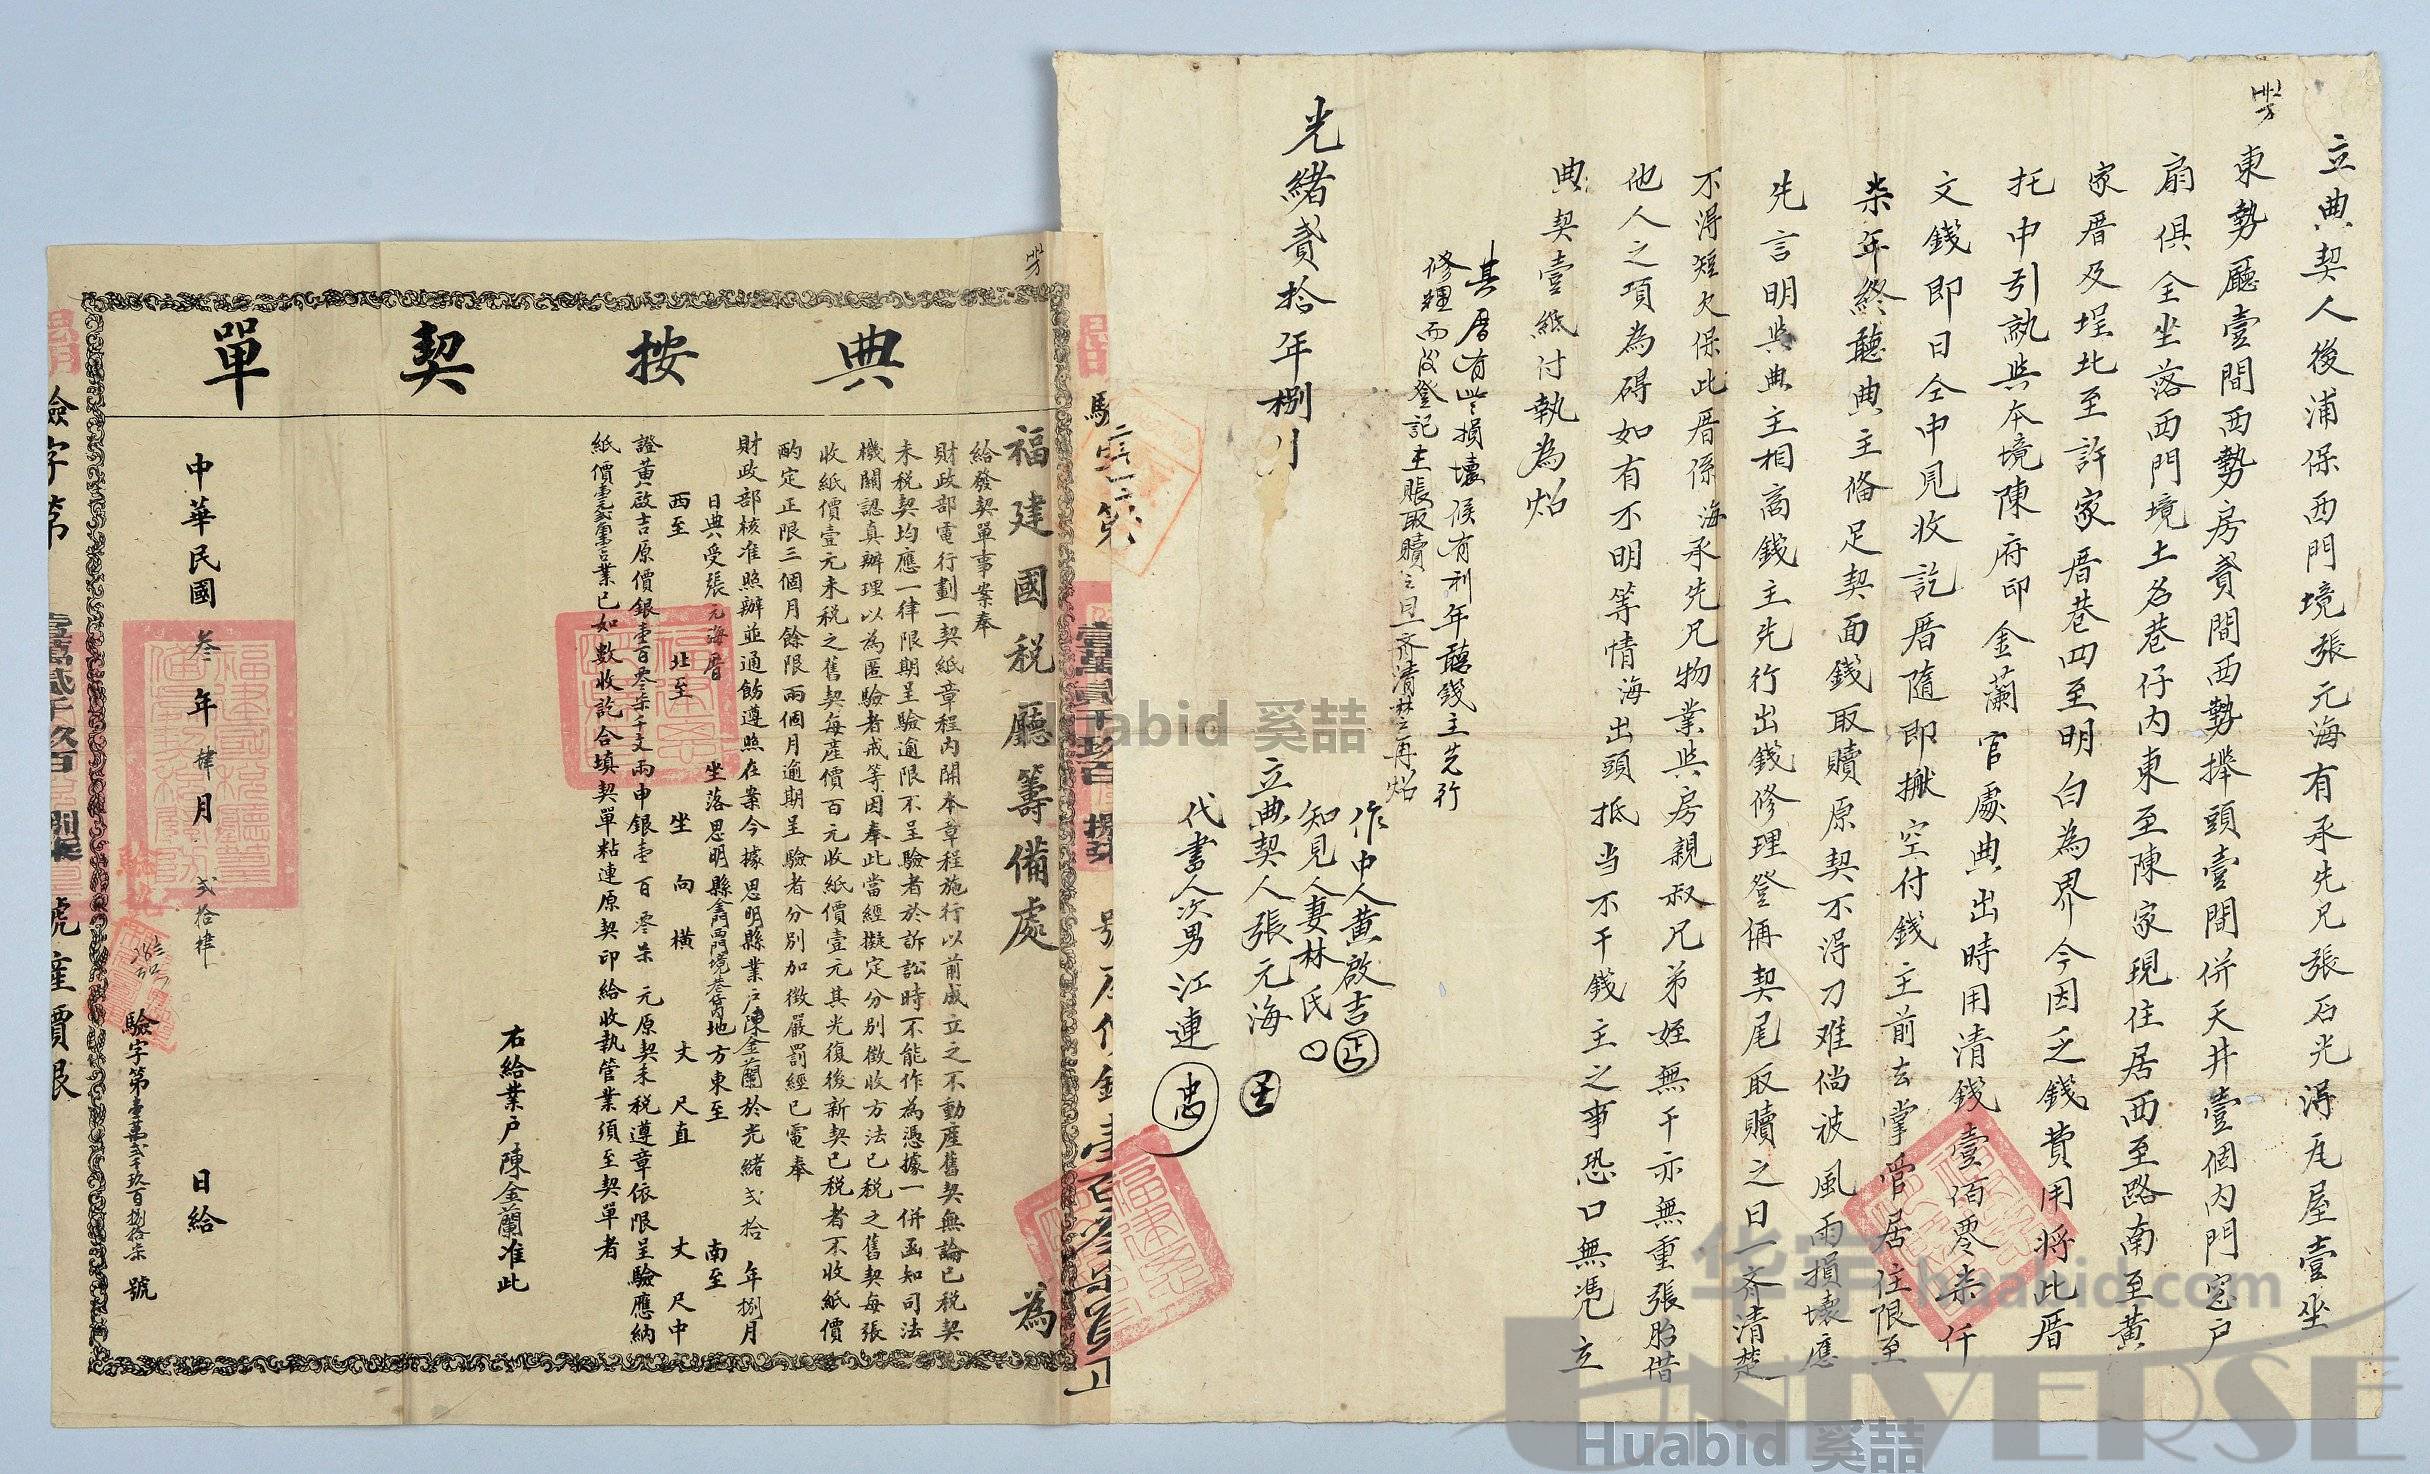 立典契人後浦保西門境張元海有承先兄張石光得瓦屋壹坐
東勢廳壹間西勢房貳間西勢攑頭壹間併天井壹個內門窓戶
扇俱全坐落西門境土名巷仔內東至陳家現住居西至路南至黃
家厝及埕北至許家厝巷四至明白為界今因乏錢費用將此厝
托中引就與本境陳府印金蘭官處典出時用清錢壹佰零柒仟
文錢即日仝中見收訖厝隨即搬空付錢主前去掌管居住限至
柒年終聽典主俻足契面錢取贖原契不得刁难倘被風雨損壞應
先言明與典主相啇錢主先行出錢修理登俻契尾取贖之日一齐清楚
不得短欠保此厝係海承先兄物業與房親叔兄弟姪無干亦無重張胎借
他人之項為碍如有不明等情海出頭抵当不干錢主之事恐口無憑立
典契壹紙付執為炤
其厝有些損壞候有利年聽錢主先行
修理而後登記主賬取贖之日一齐清楚之再炤
作中人黃啟吉
知見人妻林氏
立典契人張元海
代書人次男江連 忠
光緒貳拾年捌月
典按契單
福建國稅廳籌備處 為
給發契單事案奉
財政部電行劃一契紙章程內開本章程施行以前成立之不動產舊契無論已稅契
未稅契均應一律限期呈驗逾限不呈驗者於訴訟時不能作為憑據一併函知司法
機關認真辦理以為匿驗者戒等因奉此當經擬定分別徵收方法已稅之舊契每張
收紙價壹元未稅之舊契每產價百元收紙價壹元其光復後新契已稅者不收紙價
酌定正限三個月餘限兩個月逾期呈驗者分別加徵嚴罰經已電奉
財政部核准照辦並通飭遵照在案今據思明縣業戶陳金蘭於光緒弍拾 年捌月
日典受張元海厝 坐落思明縣金門西門境巷仔內地方東至 南至
西至 北至 坐 向 橫 丈 尺直 丈 尺中
證黃啟吉原價銀壹百零柒千文兩申銀壹百零柒 元原契未稅遵章依限呈驗應納
紙價業已如數收訖合填契單粘連原契印給收執管業須至契單者
右給業戶陳金蘭准此
中華民國叁年肆月弍拾肆日給
驗字第壹萬弍千玖百捌拾柒號
驗字第 壹萬貳千玖百捌拾柒 號產價銀